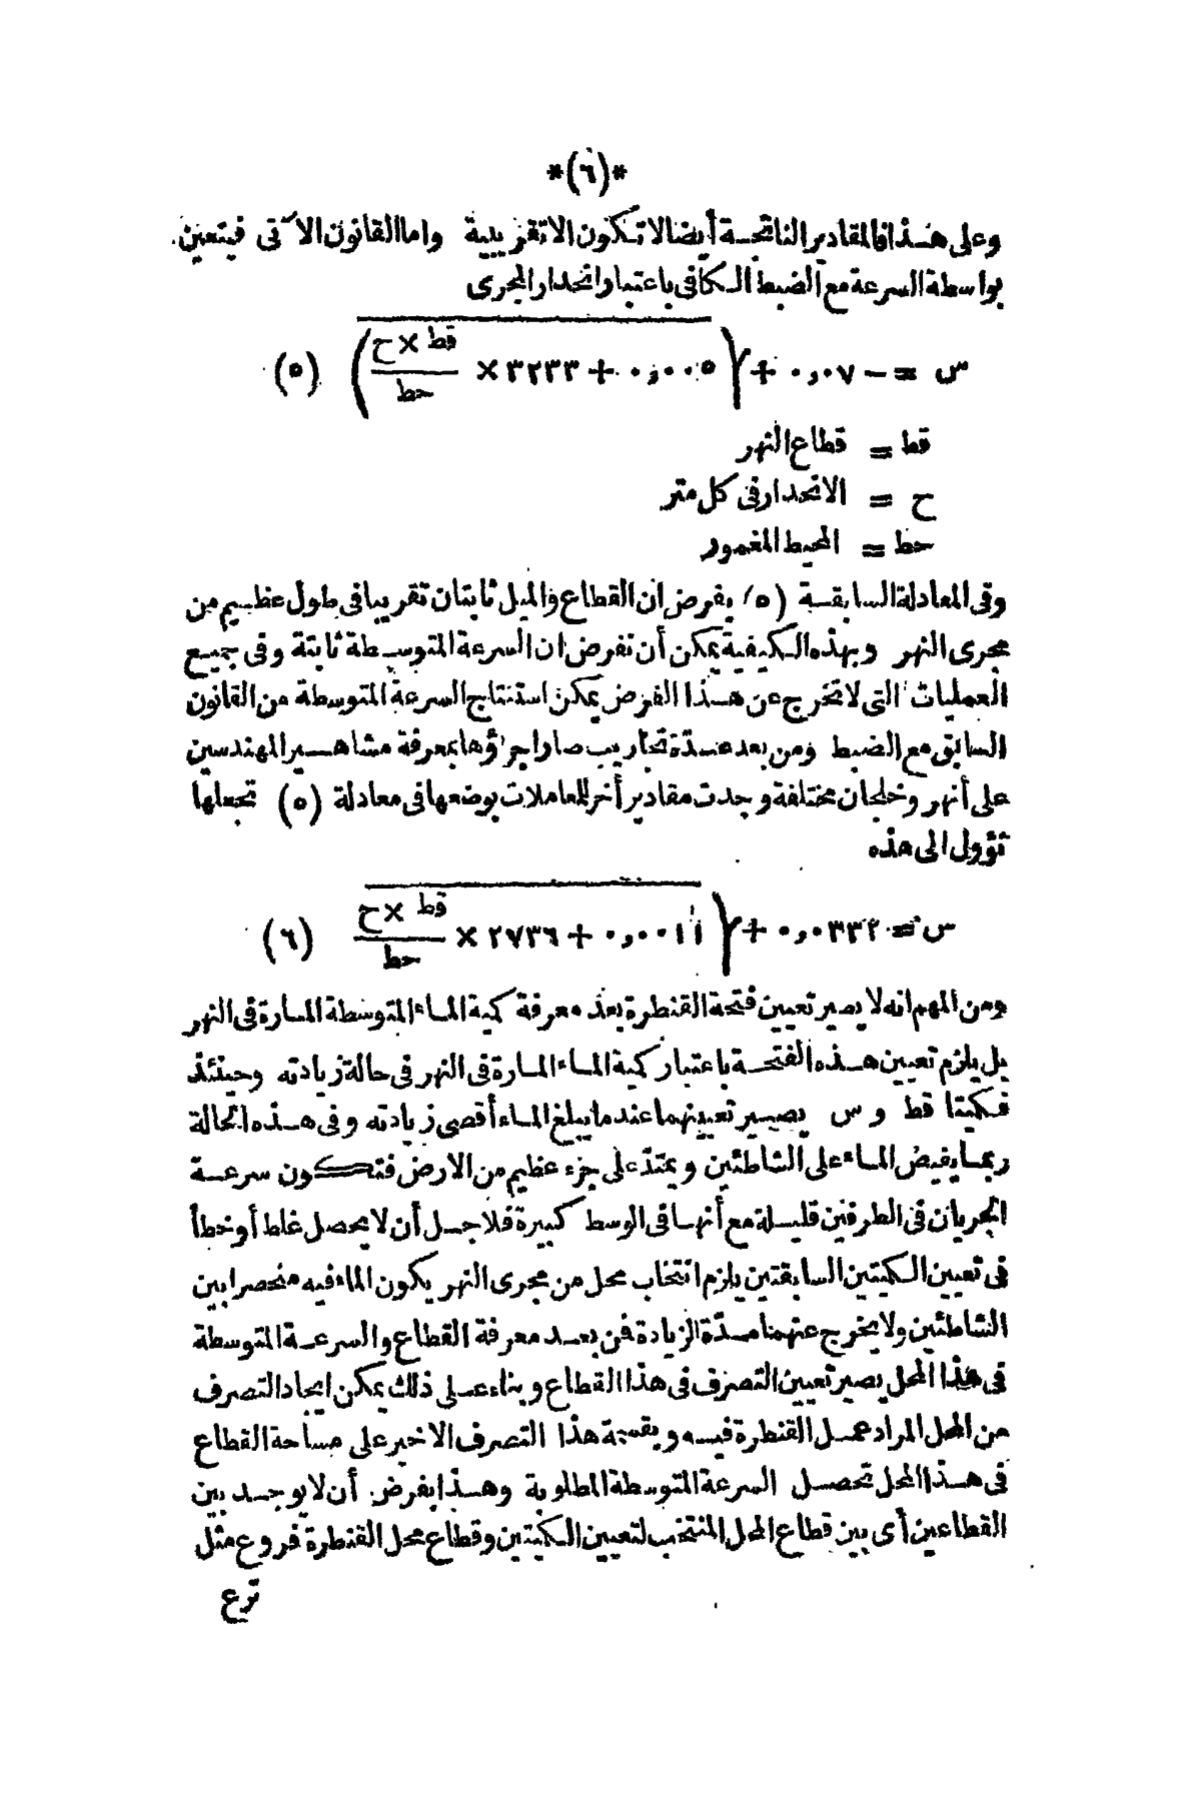 *(٦)*
وعلى هذا فالمقادير الناتجة أيضا لا تكون الا تقريبية واما القانون الآتى فيتعين
بواسطة السرعة مع الضبط الكافى باعتبار انحدار المجرى
س = - ٠٫٠٧ + √(٠٫٠٠٥ + ٣٢٣٣ × قط × ح / حط) (٥)
قط = قطاع النهر
ح = الانحدار فى كل متر
حط = المحيط المغمور
وفى المعادلة السابقة (٥) يفرض ان القطاع والميل ثابتان تقريبا فى طول عظيم من
مجرى النهر وبهذه الكيفية يمكن أن نفرض ان السرعة المتوسطة ثابتة وفى جميع
العمليات التى لا تخرج عن هذا الفرض يمكن استنتاج السرعة المتوسطة من القانون
السابق مع الضبط ومن بعد عدّة تجاريب صار اجراؤها بمعرفة مشاهير المهندسين
على أنهر وخلجان مختلفة وجدت مقادير أخر للمعاملات بوضعها فى معادلة (٥) تجعلها
تؤول الى هذه
س = ٠٫٠٣٣٢ + √٠٫٠٠١١ + ٢٧٣٦ × قط × ح / حط (٦)
ومن المهم انه لا يصير تعيين فتحة القنطرة بعد معرفة كمية الماء المتوسطة المارة فى النهر
بل يلزم تعيين هذه الفتحة باعتبار كمية الماء المارة فى النهر فى حالة زيادته وحينئذ
فكميتا قط و س يصير تعيينهما عند ما يبلغ الماء أقصى زيادته وفى هذه الحالة
ربما يفيض الماء على الشاطئين ويمتدّ على جزء عظيم من الارض فتكون سرعة
الجريان فى الطرفين قليلة مع أنها فى الوسط كبيرة فلاجل أن لا يحصل غلط أو خطأ
فى تعيين الكميتين السابقتين يلزم انتخاب محل من مجرى النهر يكون الماء فيه منحصرا بين
الشاطئين ولا يخرج عنهما مدّة الزيادة فمن بعد معرفة القطاع والسرعة المتوسطة
فى هذا المحل يصير تعيين التصرف فى هذا القطاع وبناء على ذلك يمكن ايجاد التصرف
من المحل المراد عمل القنطرة فيه وبقسمة هذا التصرف الاخير على مساحة القطاع
فى هذا المحل تحصل السرعة المتوسطة المطلوبة وهذا بفرض أن لا يوجد بين
القطاعين أى بين قطاع المحل المنتخب لتعيين الكميتين وقطاع محل القنطرة فروع مثل
ترع